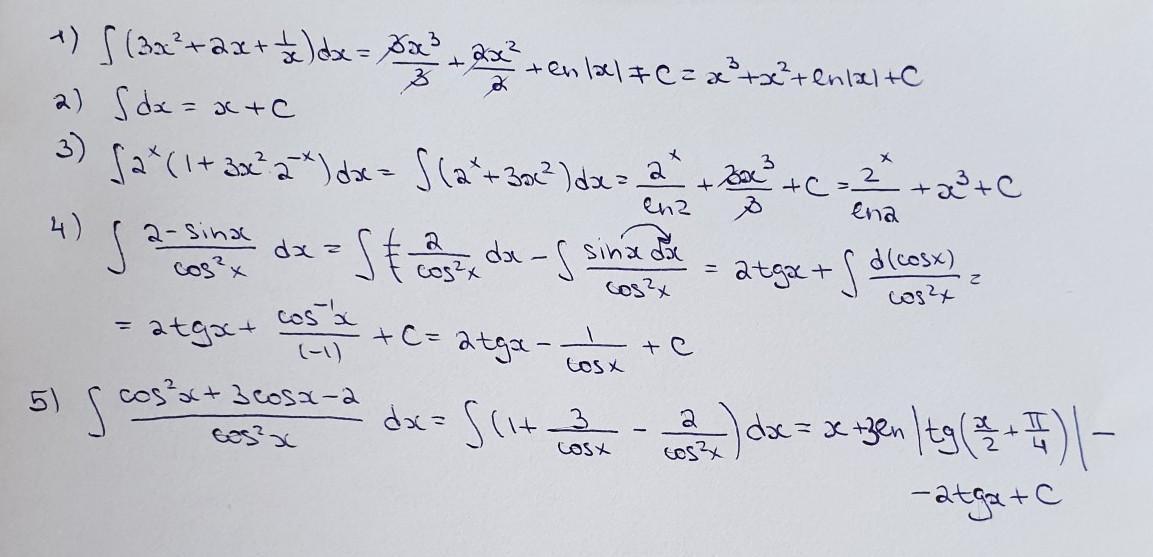 1) ∫(3x²+2x+1/x)dx = 3x³/3 + 2x²/2 + ln|x| + C = x³+x²+ln|x|+C
2) ∫dx = x+C
3) ∫2ˣ(1+3x²·2⁻ˣ)dx = ∫(2ˣ+3x²)dx = 2ˣ/ln2 + 3x³/3 + C = 2ˣ/ln2 + x³ + C
4) ∫ (2-sinx)/cos²x dx = ∫ 2/cos²x dx - ∫ sinx dx/cos²x = 2tgx + ∫ d(cosx)/cos²x =
= 2tgx + cos⁻¹x/(-1) + C = 2tgx - 1/cosx + C
5) ∫ (cos²x+3cosx-2)/cos²x dx = ∫(1+ 3/cosx - 2/cos²x)dx = x+3ln|tg(x/2+π/4)| -
-2tgx+C